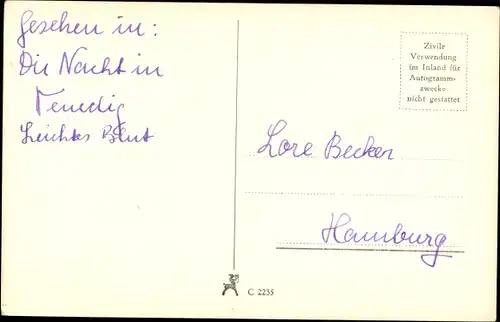 Gesehen in:
Die Nacht in
Venedig
Leichtes Blut
Zivile
Verwendung
im Inland für
Autogramm-
zwecke
nicht gestattet
Lore Becker
Hamburg
C 2235